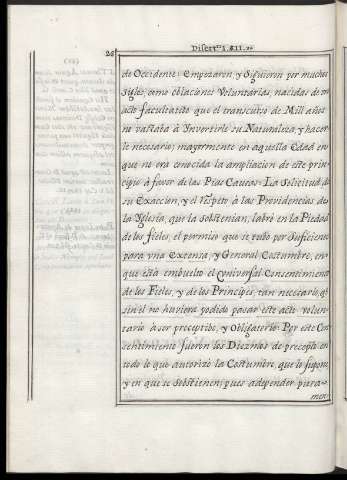 26
Disert.n I. §II.
de Occidente: Empezaron, y Siguieron por muchos
Syglos, como oblaciones Voluntarias, nacidas de un
acto facultatibo que el transcurso de Mill años
no vastaba à Ynvertirle su Naturaleza, y hacer
le necesario; mayormente en aquella Edad en
que no era conocida la ampliacion de este prin-
cipio à favor de las Pias Causas. La Solicitud, de
su Exaccion, y el respeto à las Providencias de
la Yglesia, que la sobstenian, labrò en la Piedad
de los fieles, el permiso que se tubo por Suficiente
para vna Extensa, y General Costumbre, en
que està embuelto el Vniversal Consentimiento
de los Fieles, y de los Principes, tan necesario, qe
sin èl no huviera podido pasar este acto volun-
tario à ser preceptibo, y Obligatorio. Por este Con
sentimiento fueron los Diezmos de precepto en
todo lo que autorizò la Costumbre, que lo supone
y en que se sobstienen; pues à depender pura-
men-